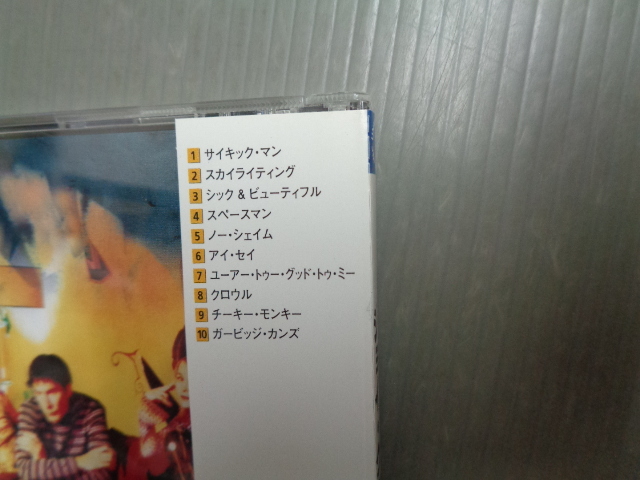 1 サイキック・マン
2 スカイライティング
3 シック & ビューティフル
4 スペースマン
5 ノー・シェイム
6 アイ・セイ
7 ユーアー・トゥー・グッド・トゥ・ミー
8 クロウル
9 チーキー・モンキー
10 ガービッジ・カンズ